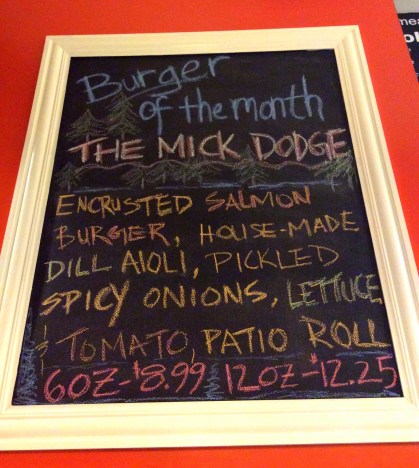 Burger
of the month
THE MICK DODGE
ENCRUSTED SALMON
BURGER, HOUSE-MADE
DILL AIOLI, PICKLED
SPICY ONIONS, LETTUCE
& TOMATO, PATIO ROLL
6OZ-$8.99 12OZ-$12.25